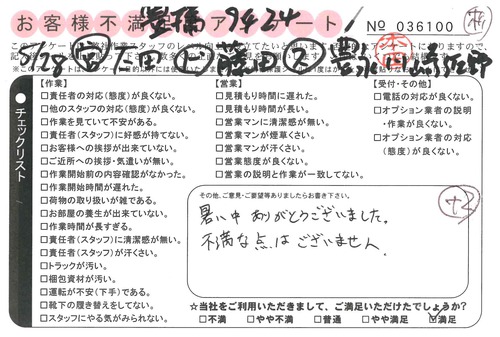 お客様不満
ア
ート
豊橋 9424
No 036100
8/28 仁田 藤田
チェックリスト
【作業】
□責任者の対応(態度)が良くない。
□他のスタッフの対応(態度)が良くない。
□作業を見ていて不安がある。
□責任者(スタッフ)に好感が持てない。
□お客様への挨拶が出来ていない。
□ご近所への挨拶・気遣いが無い。
□作業開始前の内容確認がなかった。
□作業開始時間が遅れた。
□荷物の取り扱いが雑である。
□お部屋の養生が出来ていない。
□作業時間が長すぎる。
□責任者(スタッフ)に清潔感が無い。
□責任者(スタッフ)が汗くさい。
□トラックが汚い。
□梱包資材が汚い。
□運転が不安(下手)である。
□靴下の履き替えをしてない。
□スタッフにやる気がみられない。
【営業】
□見積もり時間に遅れた。
□見積もり時間が長い。
□営業マンに清潔感が無い。
□営業マンが煙草くさい。
□営業マンが汗くさい。
□営業態度が良くない。
□営業の説明と作業が一致してない。
【受付・その他】
□電話の対応が良くない。
□オプション業者の説明
・作業が良くない。
□オプション業者の対応
(態度)が良くない。
その他、ご意見・ご要望等ありましたらお書き下さい。
暑い中 ありがとうございました。
不満な点は ございません。
+2
☆当社をご利用いただきまして、ご満足いただけたでしょうか?
□不満 □やや不満 □普通 □やや満足 ☑満足